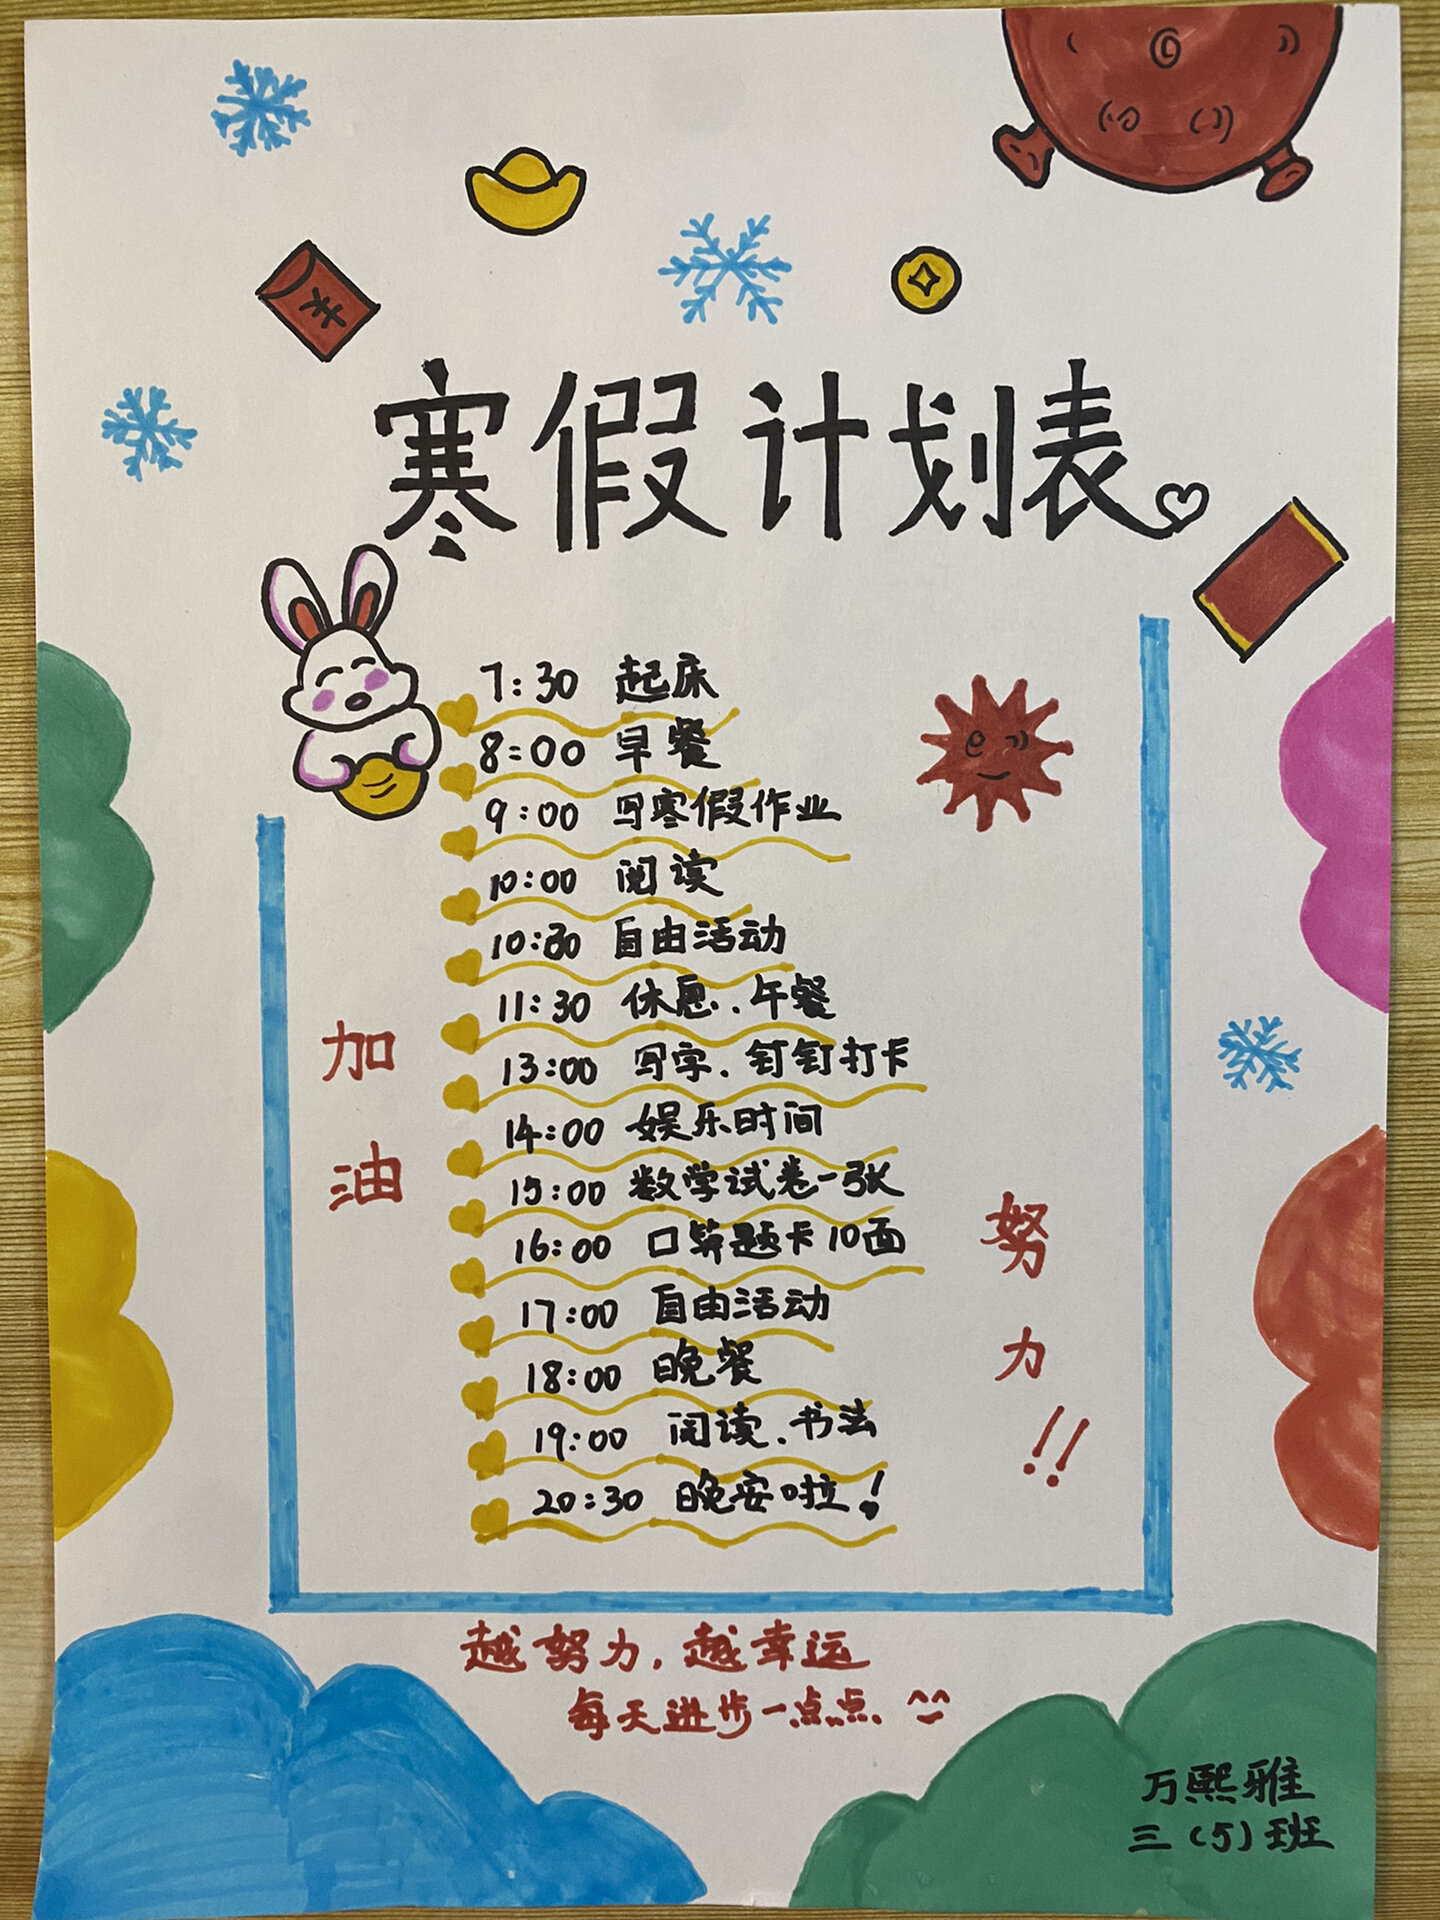 寒假计划表
7:30 起床
8:00 早餐
9:00 写寒假作业
10:00 阅读
10:30 自由活动
11:30 休息、午餐
13:00 写字、钉钉打卡
14:00 娱乐时间
15:00 数学试卷一张
16:00 口算题卡10面
17:00 自由活动
18:00 晚餐
19:00 阅读、书法
20:30 晚安啦!
加油
努力!!
越努力,越幸运
每天进步一点点、^^
万熙雅
三(5)班